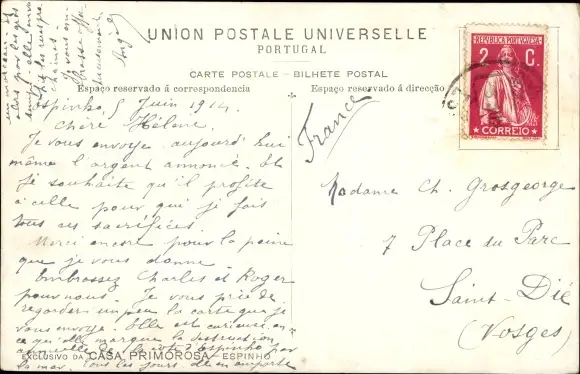 UNION POSTALE UNIVERSELLE
PORTUGAL
CARTE POSTALE - BILHETE POSTAL
Espaço reservado á correspondencia
Espaço reservado á direcção
REPUBLICA PORTUGUESA
2 C.
CORREIO
Espinho, 5 Juin 1914
Chère Hélène
Je vous envoye aujourd'hui
même l'argent annoncé. Et
je souhaite qu'il profite
à celle pour qui je fais
tous ces sacrifices.
Merci encore pour la peine
que je vous donne
Embrassez Charles et Roger
pour nous. Je vous prie de
regarder un peu la carte que je
vous envoye. Elle est curieuse, en
ce qu'elle marque la destruction
de la côte d'Espinho par
la mer. Tous les jours elle en emporte
un morceau
Je vous
France
Madame Ch. Grosgeorge
7 Place du Parc
Saint-Dié
(Vosges)
EXCLUSIVO DA CASA PRIMOROSA - ESPINHO